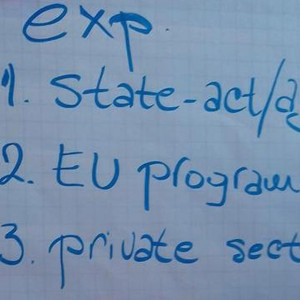 exp.
1. State-act/
2. EU program
3. private sect